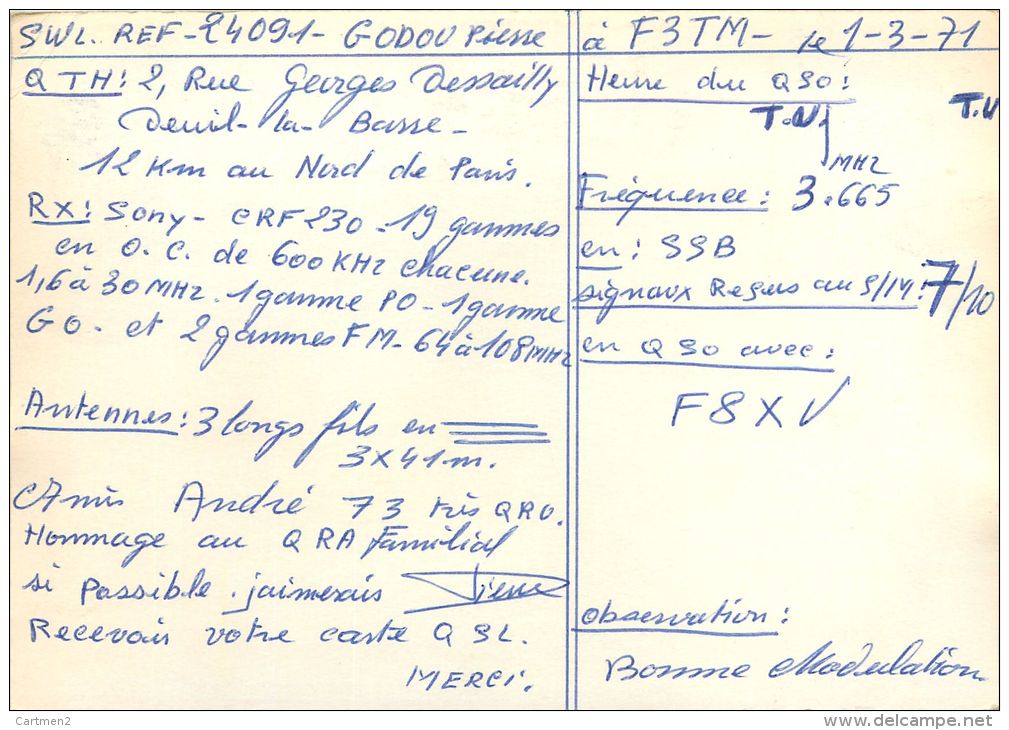 SWL. REF-24091- GODOU Pierre
QTH: 2, Rue Georges Dessailly
Deuil-la-Barre-
12 Km au Nord de Paris.
RX: Sony- CRF230-19 gammes
en O.C. de 600KHz chacune.
1,6 à 30MHz. 1gamme PO-1gamme
GO- et 2 gammes FM-64à108MHz
Antennes: 3 longs fils en
3x41m.
Amis André 73 très QRO.
Hommage au QRA Familial
si possible. jaimerais Pierre
Recevais votre carte QSL.
MERCI.
à F3TM- le 1-3-71
Heure du QSO:
T.U. T.U
MHz
Fréquence: 3.665
en: SSB
signaux Reçus au S/M: 7/10
en QSO avec:
F8XV
observation:
Bonne Modulation.
Cartmen2
delcampe.net